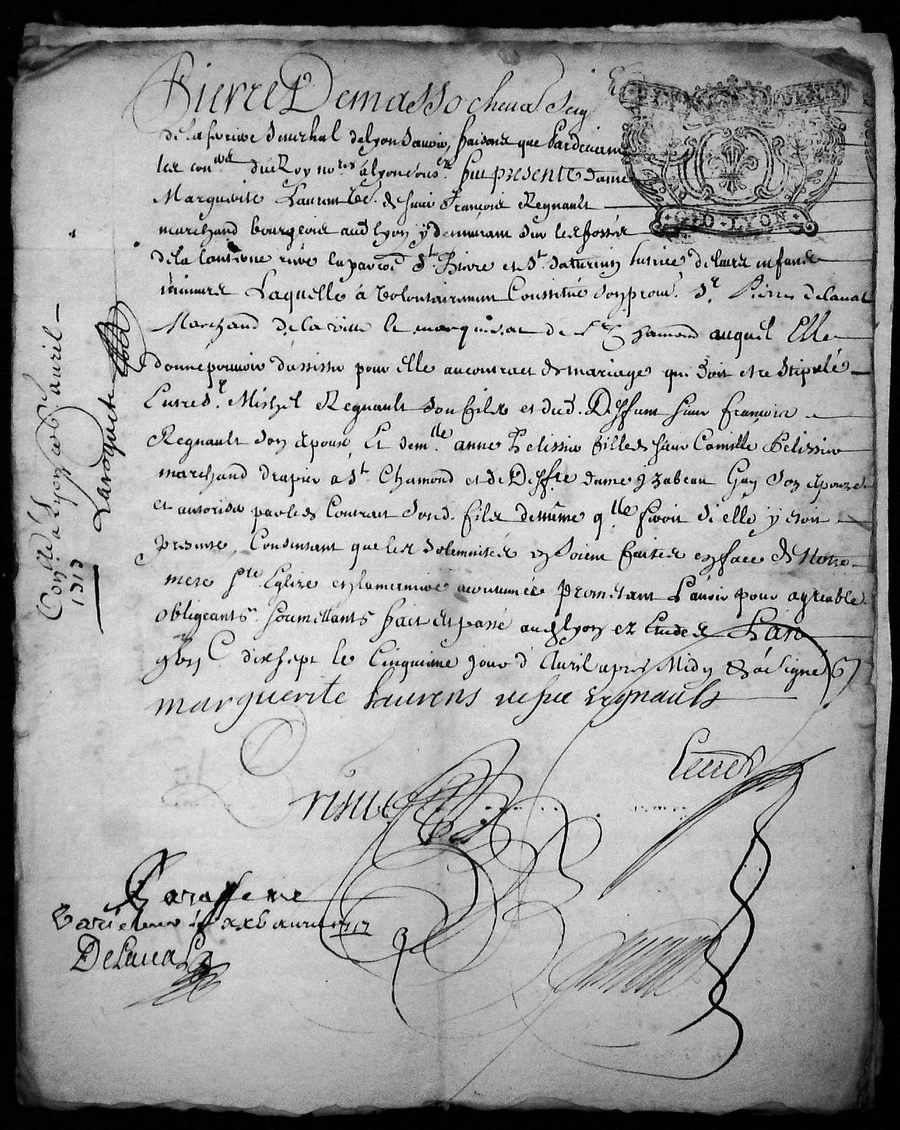 Pierre Demasso cheval Seig
G-D-LYON
de la ferriere Seneschal de Lyon Savoir, faisons que Pardevant
les con.ers du Roy no.res a Lyon sous.ez fut presente dame
Marguerite Laurent ve. de sieur François Regnault
marchand bourgeois aud Lyon y demeurant sur les fossés
de la lanterne la paroe. St. Pierre et St. Saturnin tutrice de leurs enfans
mineurs Laquelle à volontairement Constitué son procur. Sr. Pierre delaval
Marchand de la ville et marquisat de St. Chamond auquel Elle
donne pouvoir dassister pour elle au contract de mariage qui doit etre stipulé
Entre Sr. Michel Regnault son fils et dud. Deffunt sieur françois
Regnault son Epoux Et dem.lle anne Pelissier fille de sieur Camille Pelissier
marchand drapier à St. Chamond et de Deffte dame yzabeau Guy son épouze
et autoriser par led. Contrat sond. fils de mème q.lle feroit si elle y étoit
presente, Consentant que les solemnités en soient faites en face de Notre
mere Ste Eglise en la maniere acoutumée prometant L'avoir pour agreable
obligeants soumettants fait et passé aud Lyon ez Etudes L'an
dix sept le Cinquieme jour d'Avril après Midy & a signé
marguerite laurens veuve regnault
Conllé à Lyon avril
1717
Laroquete
avril 1717
DeLaval